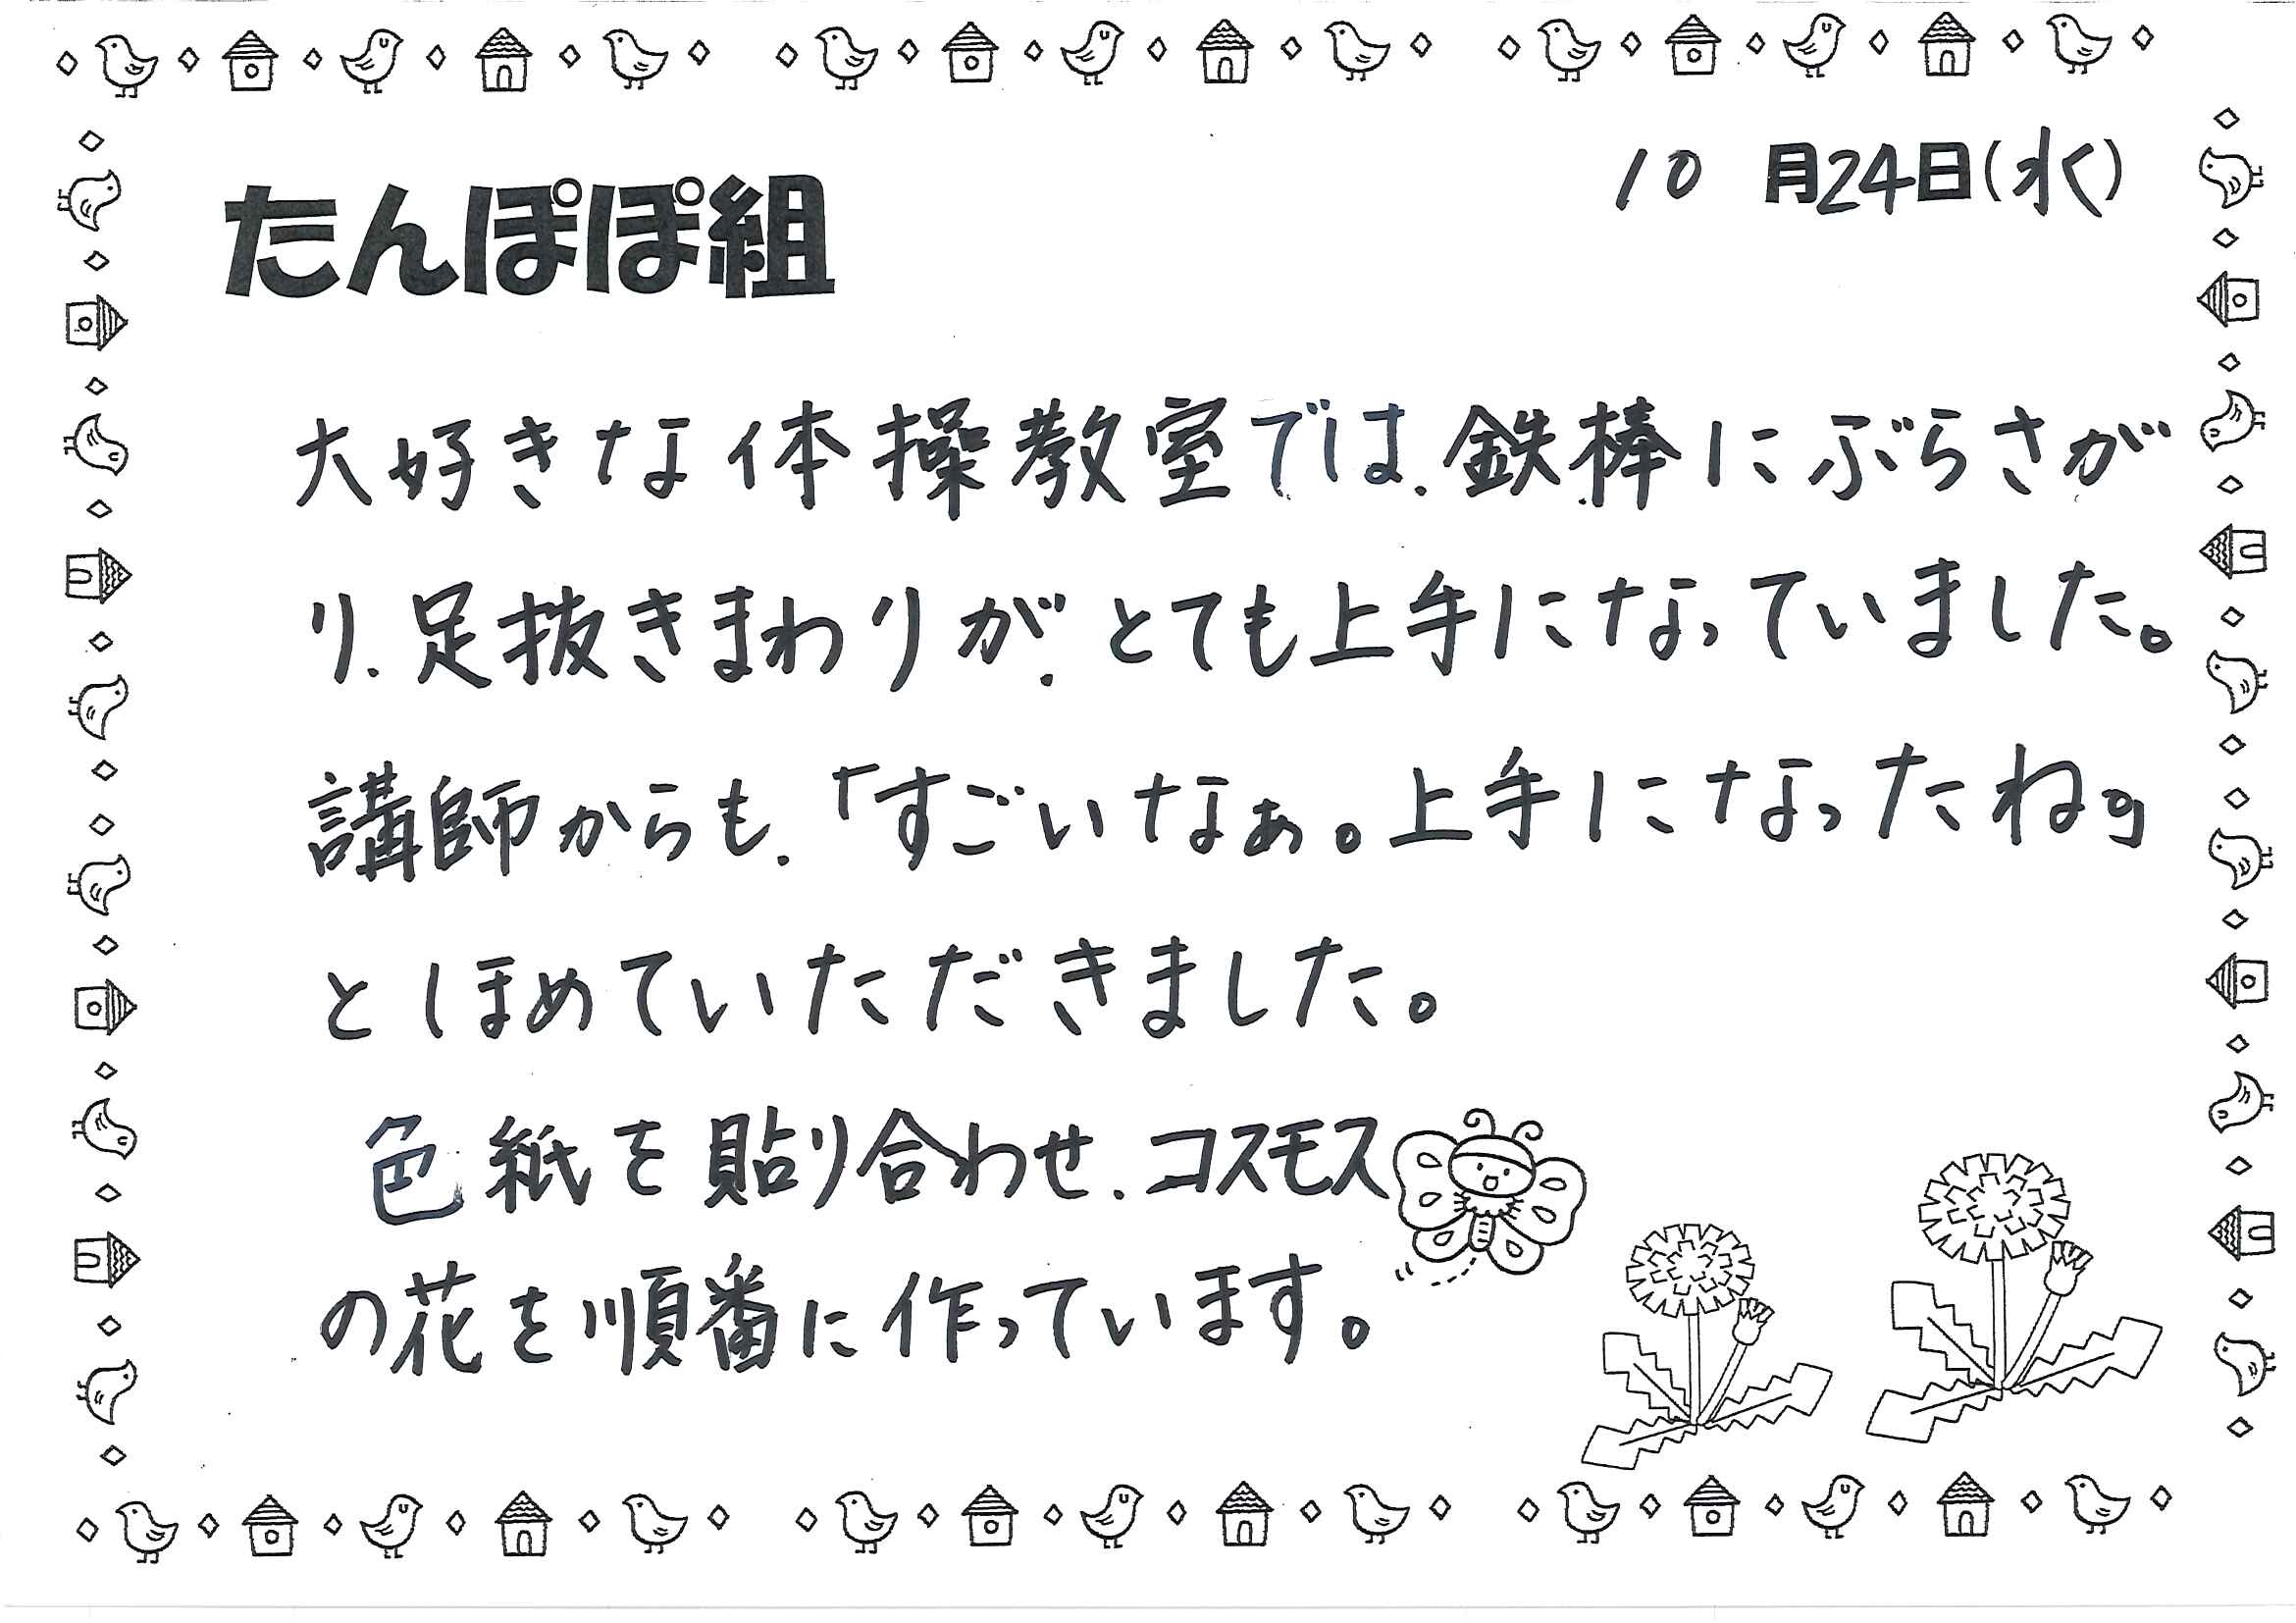 10月24日(水)
たんぽぽ組
大好きな体操教室では、鉄棒にぶらさが
り、足抜きまわりが、とても上手になっていました。
講師からも、「すごいなぁ。上手になったね。」
とほめていただきました。
色紙を貼り合わせ、コスモス
の花を順番に作っています。